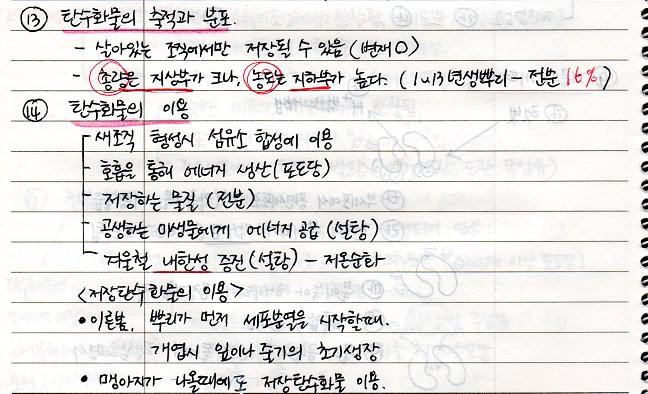 ⑬ 탄수화물의 축적과 분포.
- 살아있는 조직에서만 저장될 수 있음 (변재O)
- 총량은 지상부가 크나, 농도는 지하부가 높다. (1년생뿌리 - 전분 16%)
⑭ 탄수화물의 이용
새조직 형성시 섬유소 합성에 이용
호흡을 통해 에너지 생산 (포도당)
저장하는 물질 (전분)
공생하는 미생물에게 에너지 공급 (설탕)
겨울철 내한성 증진 (설탕) - 저온순화
<저장탄수화물의 이용>
• 이른봄, 뿌리가 먼저 세포분열을 시작할때.
개엽시 잎이나 줄기의 초기생장
• 맹아지가 나올때에도 저장탄수화물 이용.